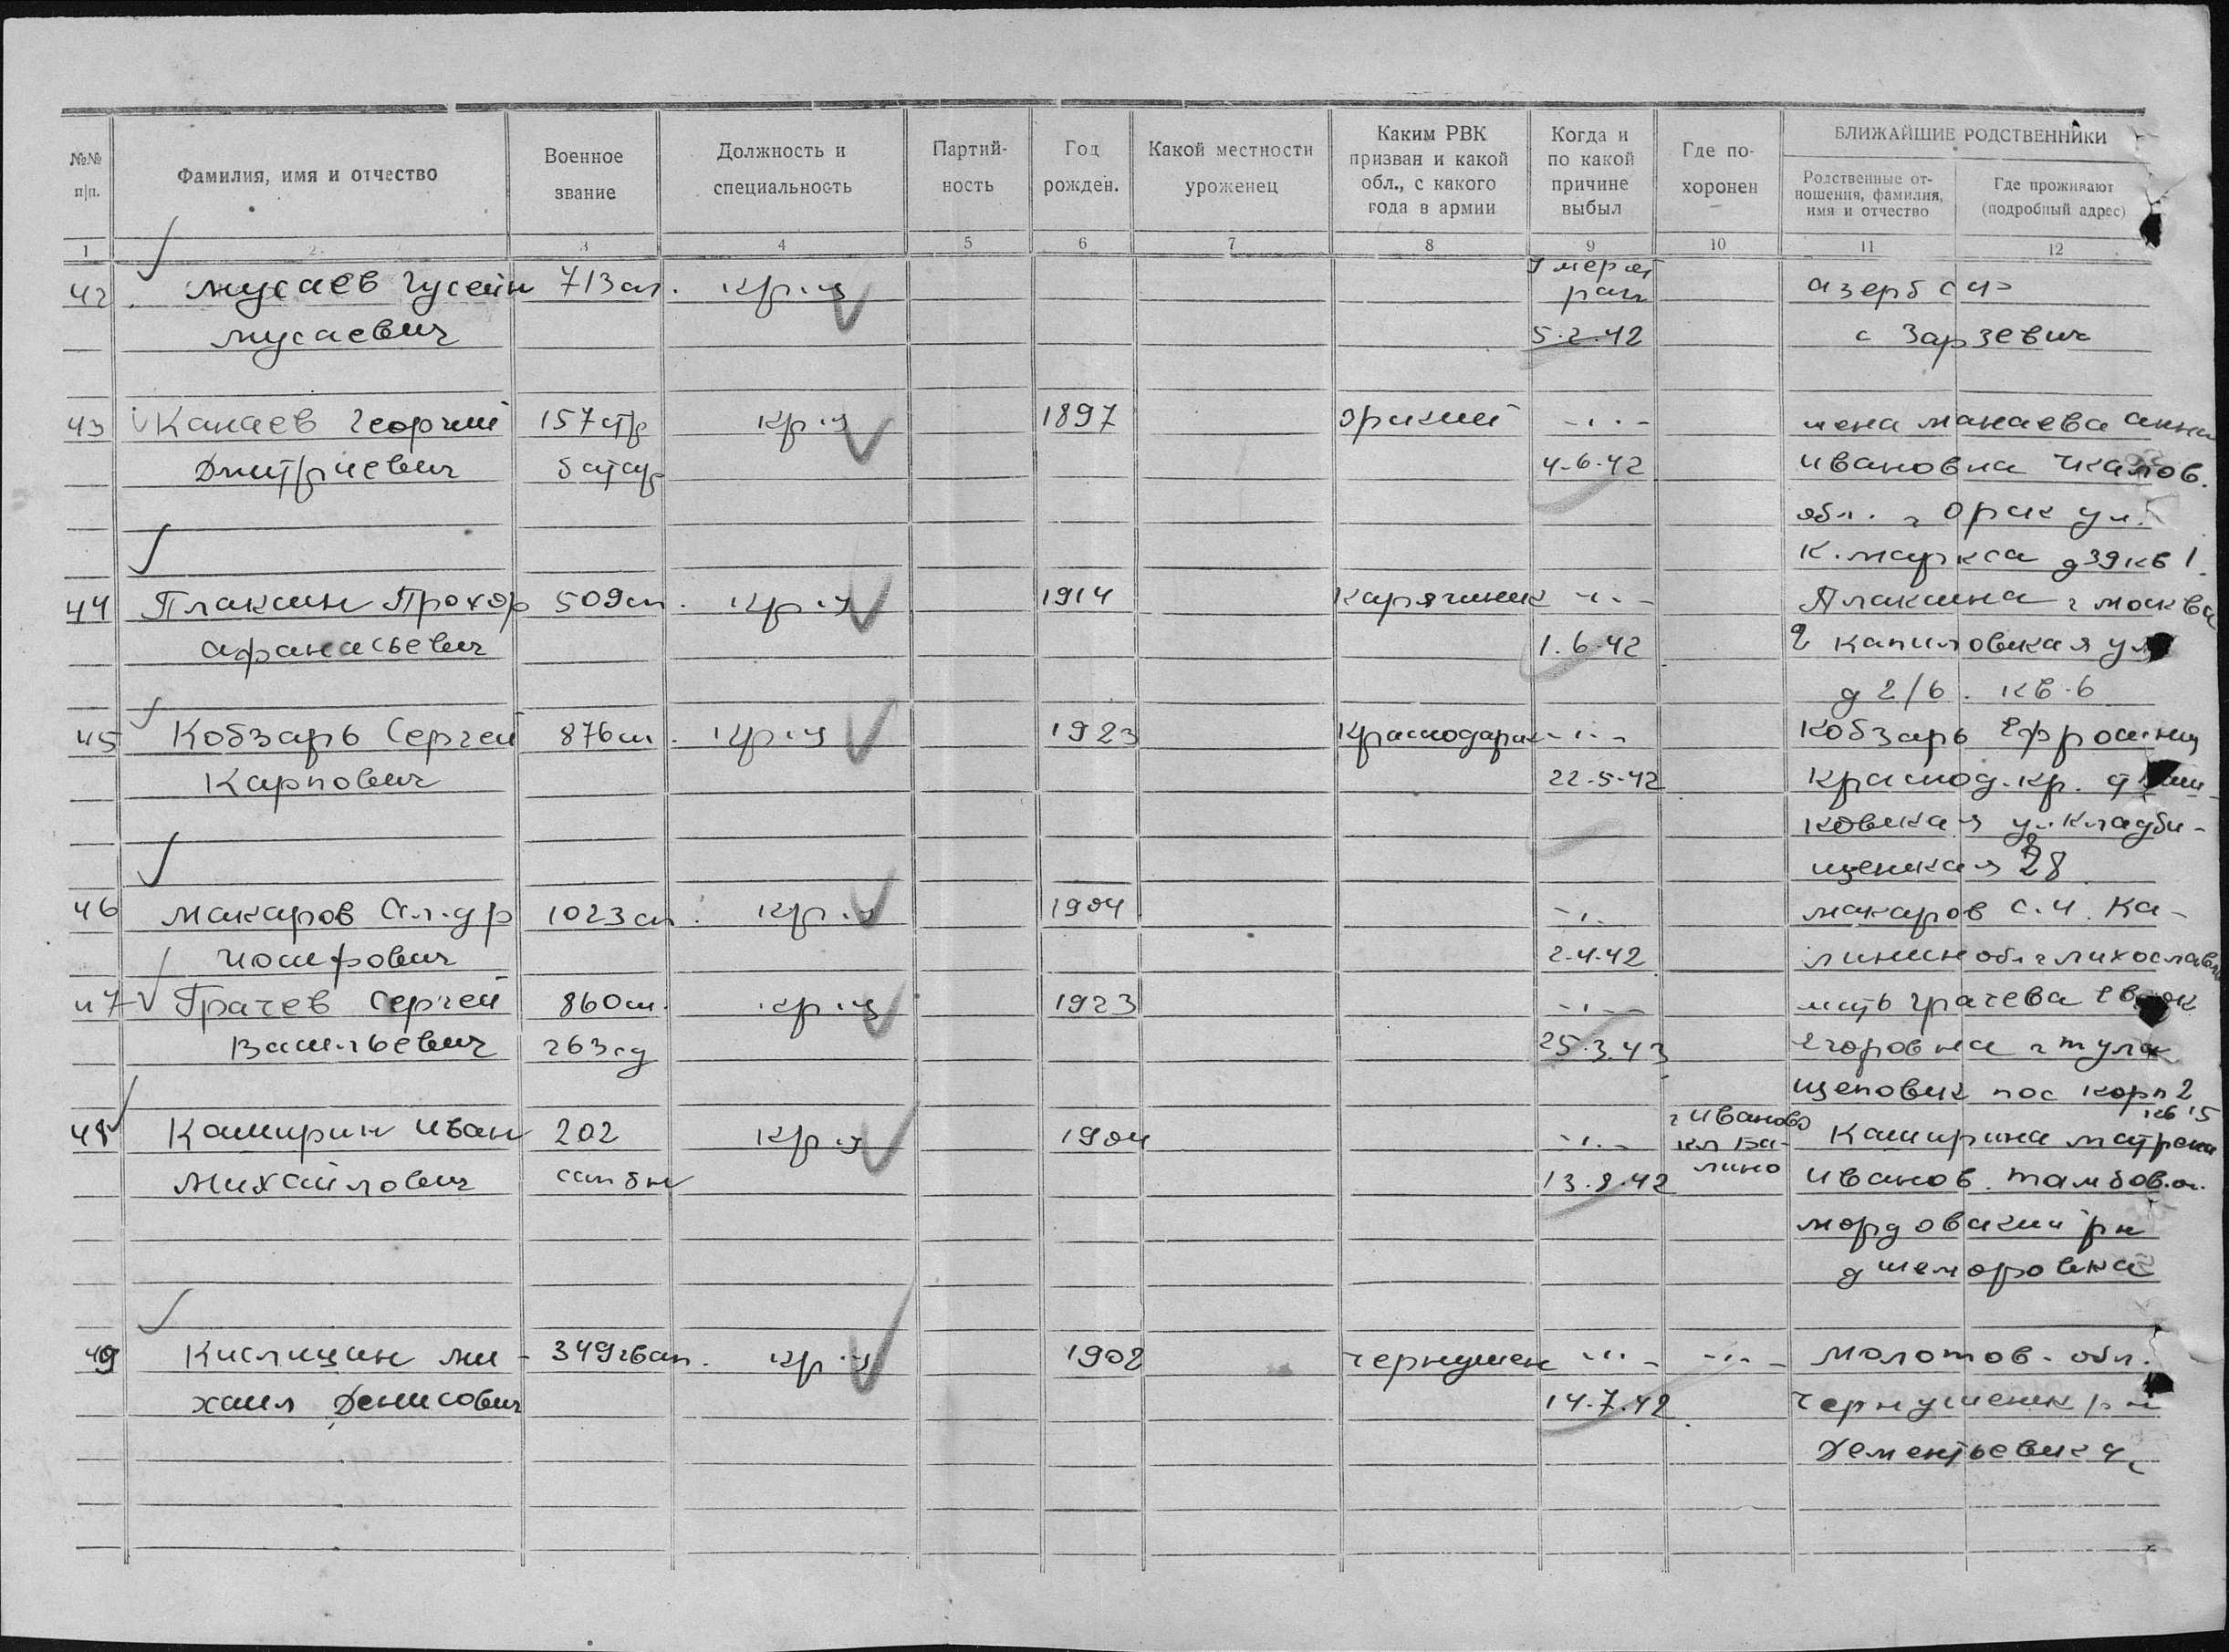 №№ п|п.
Фамилия, имя и отчество
Военное звание
Должность и специальность
Партий-ность
Год рожден.
Какой местности уроженец
Каким РВК призван и какой обл., с какого года в армии
Когда и по какой причине выбыл
Где по-хоронен
БЛИЖАЙШИЕ РОДСТВЕННИКИ
Родственные от-ношения, фамилия, имя и отчество
Где проживают (подробный адрес)
1 2 3 4 5 6 7 8 9 10 11 12
42 Мусаев Гусейн 713 сп. кр-ц Умер от ран Азерб ССР
Мусаевич 5.2.42 с Зарзевич
43 Канаев Георгий 157 стр кр-ц 1897 Орский -"- жена Манаева Анна
Дмитриевич батар 4.6.42 Ивановна Чкалов.
обл. г Орск ул.
К.Маркса д 39 кв 1
44 Плаксин Прохор 509 сп. кр-ц 1914 -"- Плаксина г Москва
Афанасьевич 1.6.42 2
ул
д 2/6. кв. 6
45 Кобзарь Сергей 876 сп. кр-ц 1923 Краснодарск -"- Кобзарь
Карпович 22.5.42 Краснод. кр.
ковская ул Кладби-
щенская 28
46 Макаров Ал-др 1023 сп. кр-ц 1904 -"- Макаров С.И. Ка-
Иосифович 2.4.42 линин обл г Лихославль
47 Грачев Сергей 860 сп. кр-ц 1923 -"- мать Грачева
Васильевич 263 сд 25.3.43 Егоровна г Тула
пос корп 2
кв 15
48 Каширин Иван 202 кр-ц 1904 -"- г Иваново кл Ба-лино Каширина Матрена
Михайлович сап бн 13.8.42 Иванов. Тамбов. о.
Мордовский р н
д Шеморовка
49 Кислицин Ми- 349 гвап. кр-ц 1902 Чернушен -"- -"- Молотов. обл.
хаил Денисович 14.7.42 Чернушенск р н